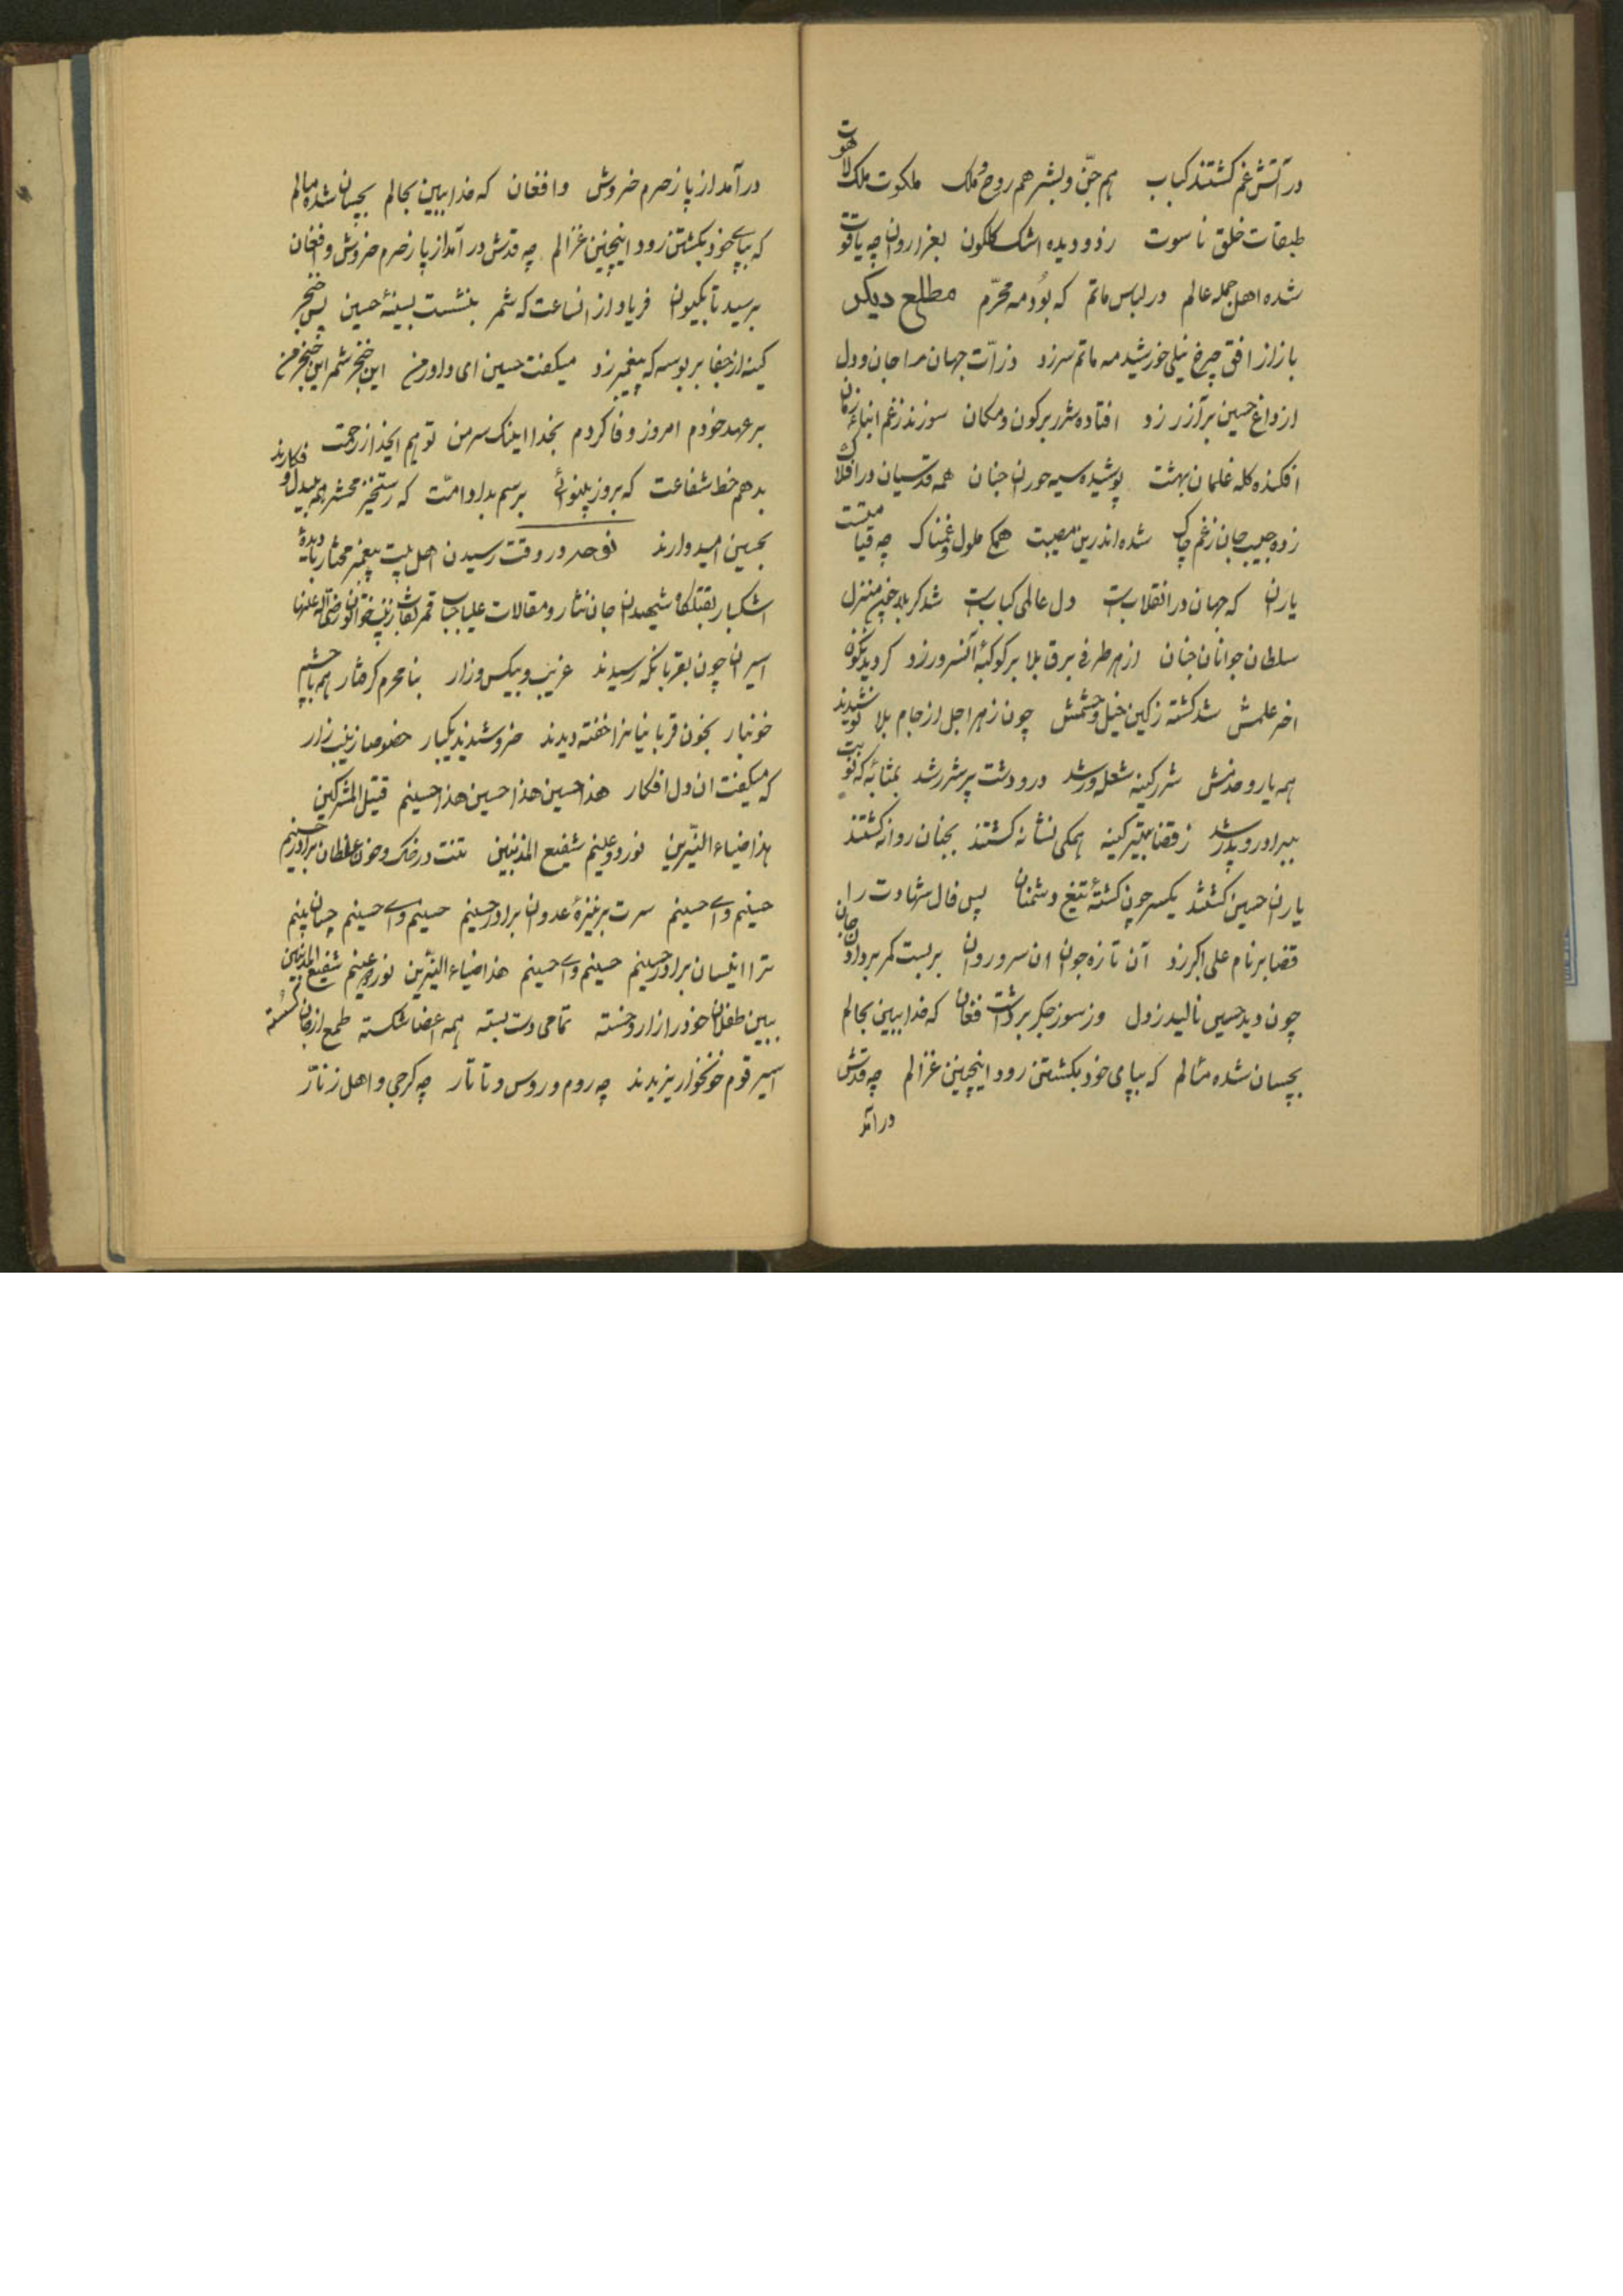 در آتش غم گشتند کباب هم جنّ و بشر هم روح و ملک ملکوت ملک لاهوت
طبقات خلق ناسوت ز دو دیده اشک گلگون بعزا روان چه یاقوت
شده اهل جمله عالم در لباس ماتم که بُوَد مه محرّم مطلع دیگر
باز از افق چرخ نیلی خورشید مه ماتم سر زد ذرّات جهان را جان و دل
از داغ حسین بر آزر زد افتاده شرر بر کون و مکان سوزند ز غم ابناء زمان
افکنده کله غلمان بهشت پوشیده سیه حوران جنان همه قدسیان در افلاک
زده جیب جان ز غم چاک شده اندرین مصیبت همگی ملول و غمناک چه قیامتست
یاران که جهان در انقلابست دل عالمی کبابست شد کربلا چنین منزل
سلطان جوانان جنان از هر طرفی برق بلا بر کوکبهٔ آنسرور زد گردید نگون
اختر علمش شد کشته ز کین خیل و حشمش چون زهر اجل از جام بلا نوشیدند
همه یار و خدمش شرر کینه شعله ور شد در و دشت پر شرر شد بمثابهٔ که نوبت
ببرادر و پدر شد ز قضا به تیر کینه همگی نشانه گشتند بجنان روانه گشتند
یاران حسین گشتند یکسر چون کشتهٔ تیغ دشمنان پس فال شهادت را
قضا بر نام علی اکبر زد آن تازه جوان ان سرو روان بر بست کمر بر دادن جان
چون دید حسین نالید ز دل وز سوز جگر برداشت فغان که خدا ببین بحالم
بچسان شده مثالم که بپای خود بکشتن رود اینچنین غزالم چه قدش
در آمد
در آمد از پا ز حرم خروش و افغان که خدا ببین بحالم بچسان شده مالم
که بپای خود بکشتن رود اینچنین غزالم چه قدش در آمد از پا ز حرم خروش و افغان
برسید تا بکیوان فریاد از انساعت که شمر بنشست بسینهٔ حسین پس خنجر
کینه از جفا بر بوسه که پیغمبر زد میگفت حسین ای داور من این خنجر شمر این حنجر من
بر عهد خودم امروز وفا کردم بخدا اینک سر من تو هم ایخدا ز رحمت
بدهم خط شفاعت که بروز بینوائی برسم بداد امّت که رستخیز محشر همه بیدل و فکارند
بحسین امیدوارند نوحه در وقت رسیدن اهل بیت پیغمبر مختار با دیدهٔ
اشکبار بقتلگاه شهیدان جان نثار و مقالات علیا جناب قمر نقاب زینب خواتون رضی الله عنها
اسیران چون بقربانگه رسیدند غریب و بیکس و زار بنامحرم گرفتار همه با چشم
خونبار بخون قربانیانرا خفته دیدند خروشیدند یکبار خصوصا زینب زار
که میگفت ان دل افکار هذا حسین هذا حسین هذا حسینم قتیل المشرکین
هذا ضیاء النیّرین نور دو عینم شفیع المذنبین تنت در خاک و خون غلطان برادر حسینم
حسینم وای حسینم سرت بر نیزهٔ عدوان برادر حسینم حسینم وای حسینم چسان بینم
ترا اینسان برادر حسینم حسینم وای حسینم هذا ضیاء النیّرین نور دو عینم شفیع المذنبین
ببین طفلان خود را زار و خسته تمامی دست بسته همه اعضا شکسته طمع از جان گسسته
اسیر قوم خونخوار یزیدند چه روم و روس و تاتار چه گرجی و اهل زنّار